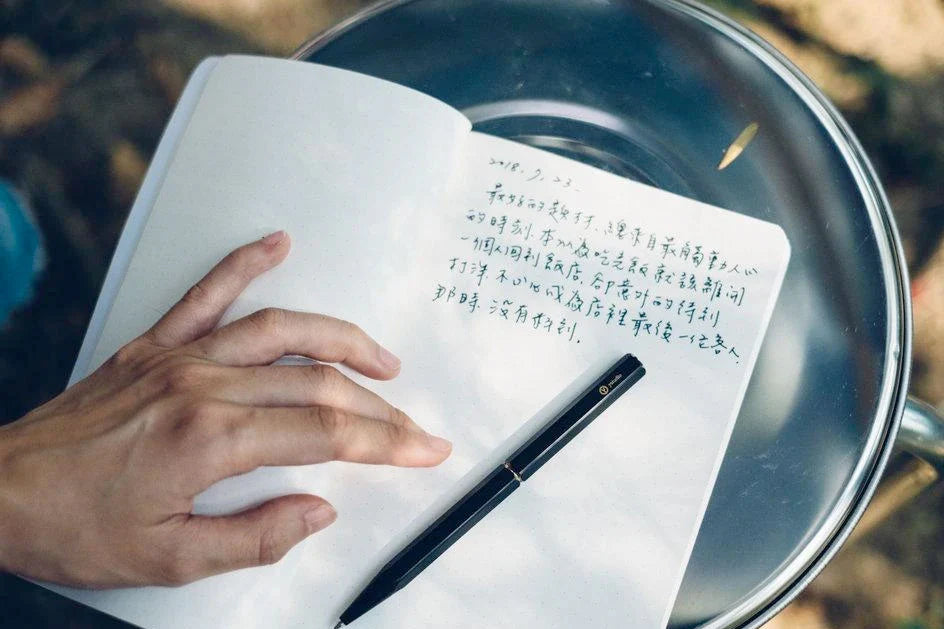 2018. 9. 23.
最好的題材, 總來自最觸動人心
的時刻. 本以為吃完飯就該離開
一個人回到飯店, 卻意外的待到
打烊, 不小心成為店裡最後一位客人.
那時, 沒有料到.
ystudio